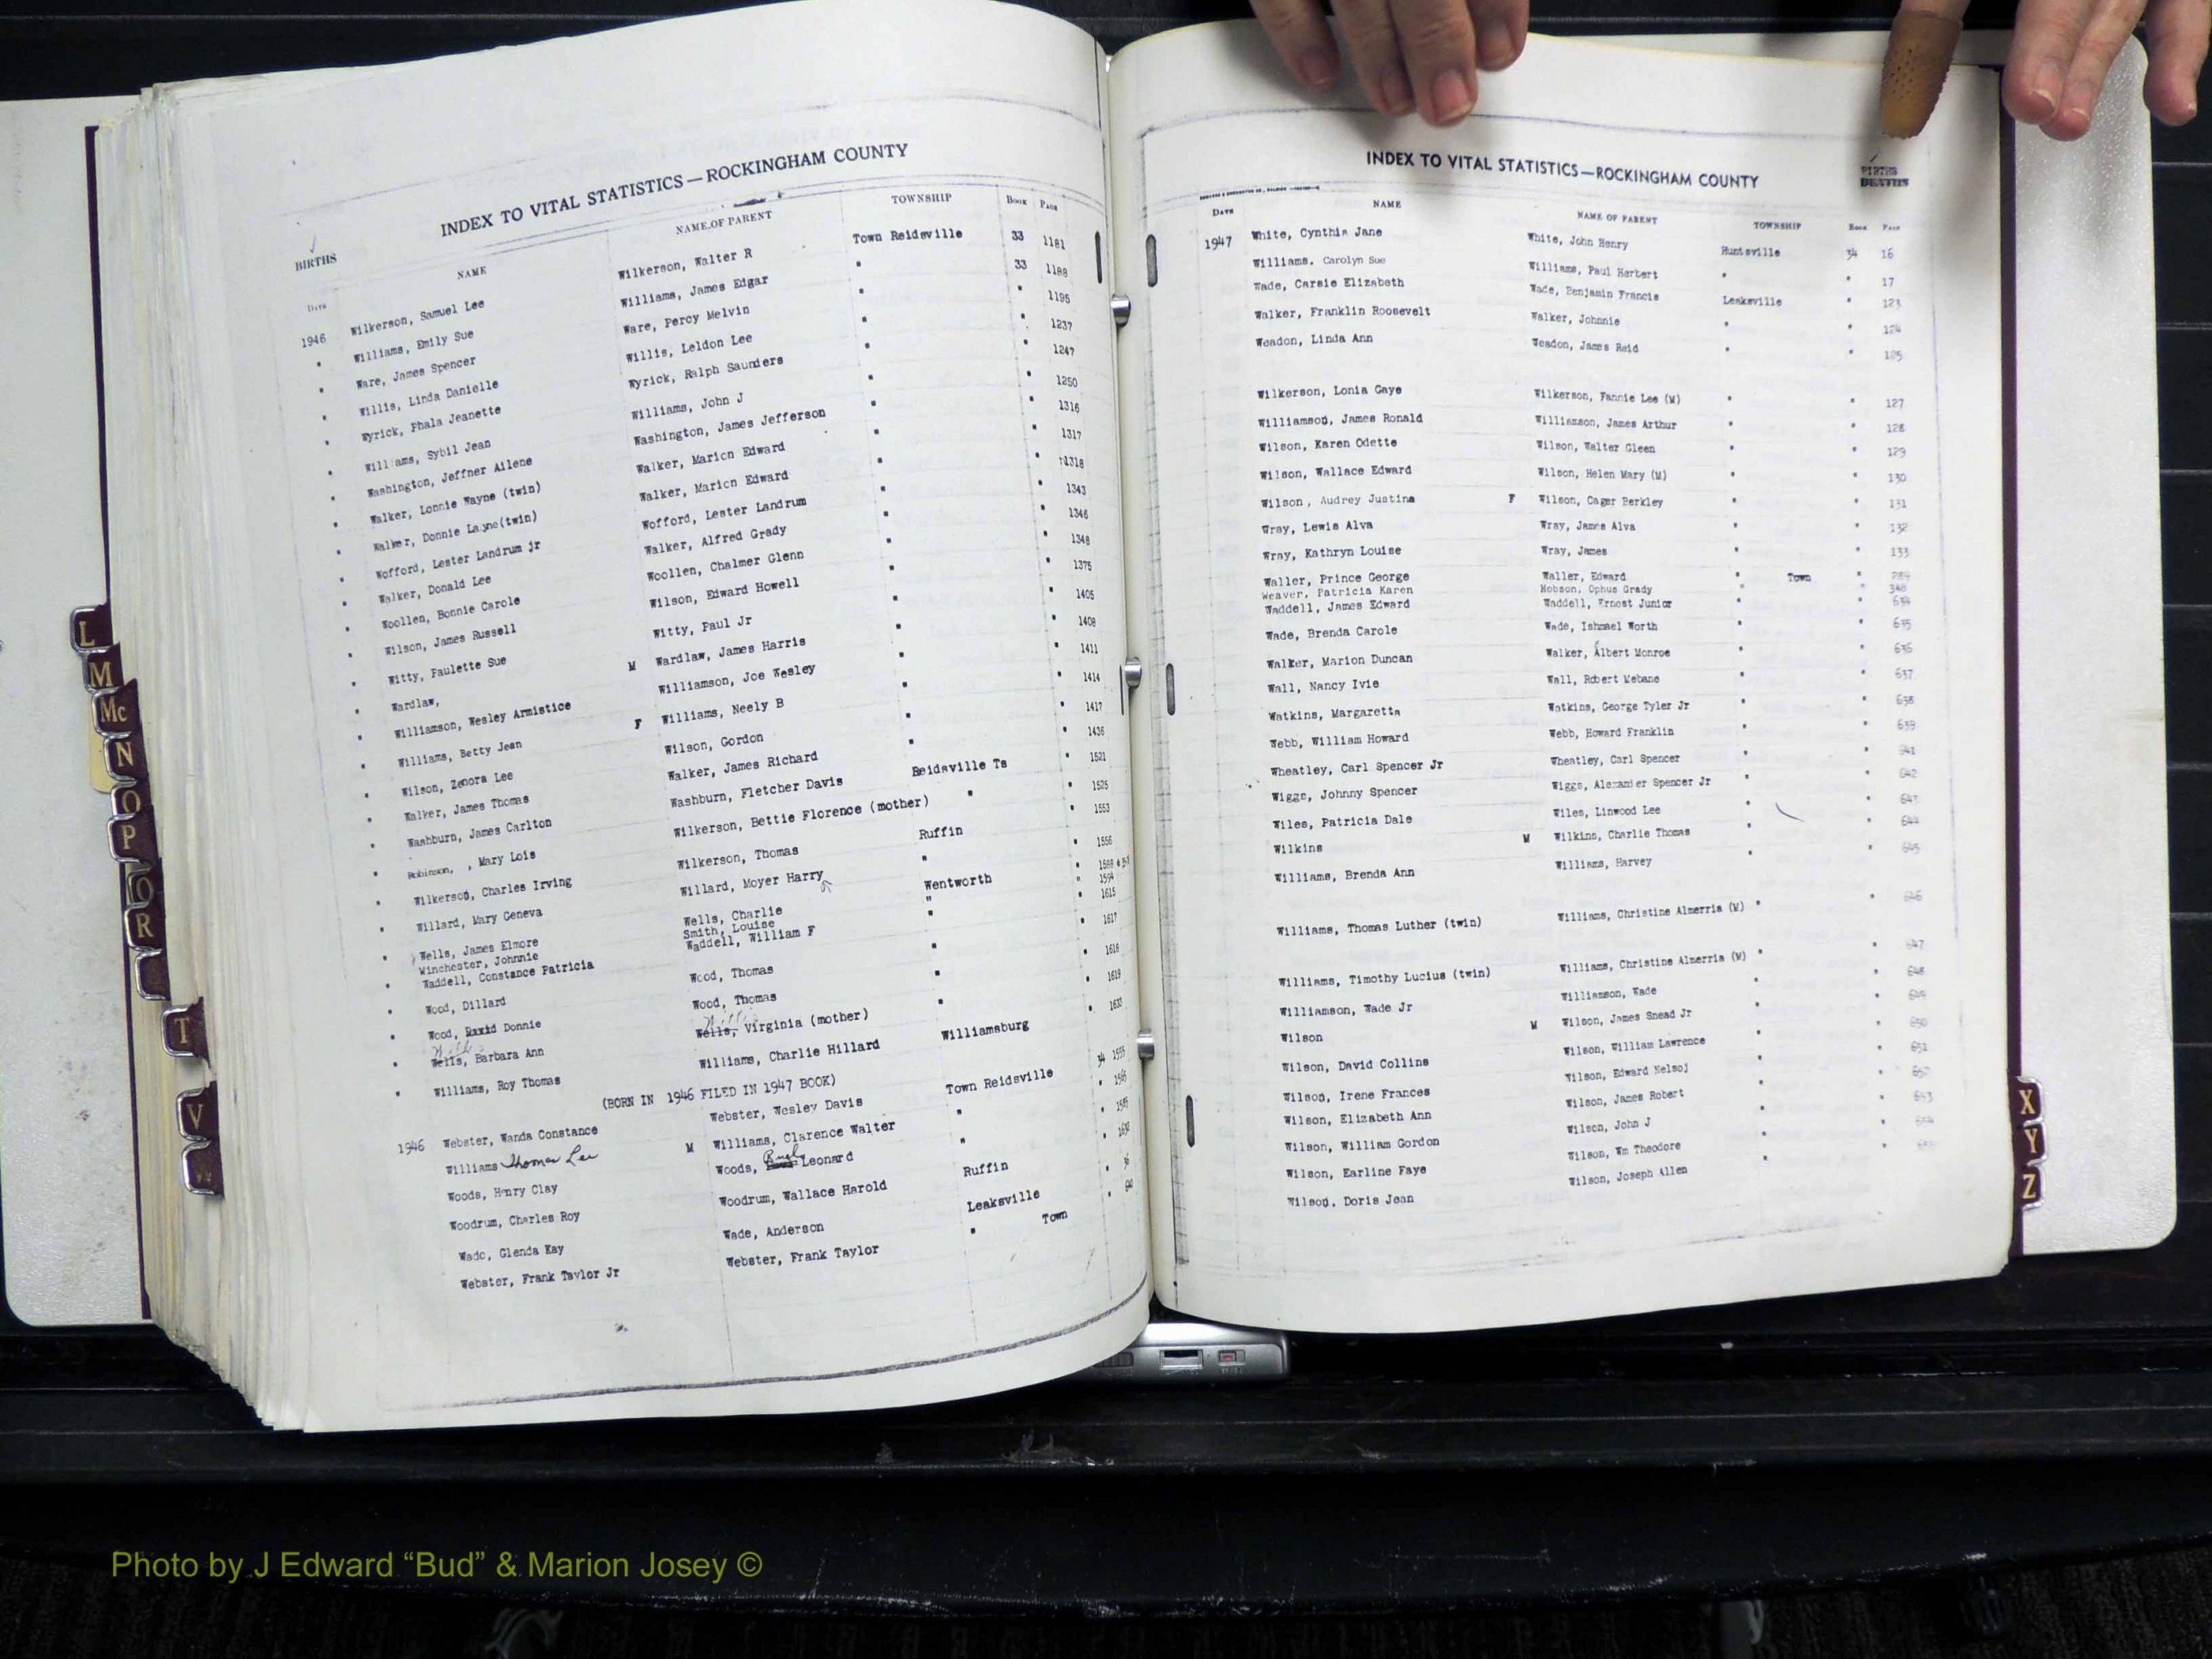 INDEX TO VITAL STATISTICS—ROCKINGHAM COUNTY
BIRTHS
DATE NAME NAME OF PARENT TOWNSHIP BOOK PAGE
1946 Wilkerson, Samuel Lee Wilkerson, Walter R Town Reidsville 33 1181
" Williams, Emily Sue Williams, James Edgar " 33 1188
" Ware, James Spencer Ware, Percy Melvin " " 1195
" Willis, Linda Danielle Willis, Leldon Lee " " 1237
" Wyrick, Phala Jeanette Wyrick, Ralph Saunders " " 1247
" Williams, Sybil Jean Williams, John J " " 1250
" Washington, Jeffner Ailene Washington, James Jefferson " " 1316
" Walker, Lonnie Wayne (twin) Walker, Marion Edward " " 1317
" Walker, Donnie Layne(twin) Walker, Marion Edward " " 1318
" Wofford, Lester Landrum jr Wofford, Lester Landrum " " 1343
" Walker, Donald Lee Walker, Alfred Grady " " 1346
" Woollen, Bonnie Carole Woollen, Chalmer Glenn " " 1348
" Wilson, James Russell Wilson, Edward Howell " " 1375
" Witty, Paulette Sue Witty, Paul Jr " " 1405
" Wardlaw, M Wardlaw, James Harris " " 1408
" Williamson, Wesley Armistice Williamson, Joe Wesley " " 1411
" Williams, Betty Jean F Williams, Neely B " " 1414
" Wilson, Zenora Lee Wilson, Gordon " " 1417
" Walker, James Thomas Walker, James Richard " " 1436
" Washburn, James Carlton Washburn, Fletcher Davis Reidsville Ts " 1521
" Robinson, , Mary Lois Wilkerson, Bettie Florence (mother) " " 1525
" Wilkerson, Charles Irving Wilkerson, Thomas Ruffin " 1553
" Willard, Mary Geneva Willard, Moyer Harry " " 1556
" Wells, James Elmore Wells, Charlie Wentworth " 1588
Winchester, Johnnie Smith, Louise " " 1594
" Waddell, Constance Patricia Waddell, William F " " 1615
" Wood, Dillard Wood, Thomas " " 1617
" Wood, Donnie Wood, Thomas " " 1618
" Wells, Barbara Ann Wells, Virginia (mother) " " 1619
" Williams, Roy Thomas Williams, Charlie Hillard Williamsburg " 1633
(BORN IN 1946 FILED IN 1947 BOOK)
1946 Webster, Wanda Constance Webster, Wesley Davis Town Reidsville 34
Williams Thomas Lee M Williams, Clarence Walter "
Woods, Henry Clay Woods, Leonard "
Woodrum, Charles Roy Woodrum, Wallace Harold Ruffin
Wade, Glenda Kay Wade, Anderson Leaksville
Webster, Frank Taylor Jr Webster, Frank Taylor " Town
INDEX TO VITAL STATISTICS—ROCKINGHAM COUNTY
BIRTHS
DEATHS
DATE NAME NAME OF PARENT TOWNSHIP BOOK PAGE
1947 White, Cynthia Jane White, John Henry Huntsville 34 16
Williams. Carolyn Sue Williams, Paul Herbert " " 17
Wade, Carsie Elizabeth Wade, Benjamin Francis Leaksville " 123
Walker, Franklin Roosevelt Walker, Johnnie " " 124
Weadon, Linda Ann Weadon, James Reid " " 125
Wilkerson, Lonia Gaye Wilkerson, Fannie Lee (M) " " 127
Williamson, James Ronald Williamson, James Arthur " " 128
Wilson, Karen Odette Wilson, Walter Gleen " " 129
Wilson, Wallace Edward Wilson, Helen Mary (M) " " 130
Wilson, Audrey Justina F Wilson, Cager Berkley " " 131
Wray, Lewis Alva Wray, James Alva " " 132
Wray, Kathryn Louise Wray, James " " 133
Waller, Prince George Waller, Edward " Town " 289
Weaver, Patricia Karen Hobson, Ophus Grady " " 348
Waddell, James Edward Waddell, Ernest Junior " " 634
Wade, Brenda Carole Wade, Ishmael Worth " " 635
Walker, Marion Duncan Walker, Albert Monroe " " 636
Wall, Nancy Ivie Wall, Robert Mebane " " 637
Watkins, Margaretta Watkins, George Tyler Jr " " 638
Webb, William Howard Webb, Howard Franklin " " 639
Wheatley, Carl Spencer Jr Wheatley, Carl Spencer " " 641
Wiggs, Johnny Spencer Wiggs, Alexander Spencer Jr " " 642
Wiles, Patricia Dale Wiles, Linwood Lee " " 643
Wilkins M Wilkins, Charlie Thomas " " 644
Williams, Brenda Ann Williams, Harvey " " 645
Williams, Thomas Luther (twin) Williams, Christine Almerria (M) " " 646
Williams, Timothy Lucius (twin) Williams, Christine Almerria (M) " " 647
Williamson, Wade Jr Williamson, Wade " " 648
Wilson M Wilson, James Snead Jr " " 649
Wilson, David Collins Wilson, William Lawrence " " 650
Wilson, Irene Frances Wilson, Edward Nelson " " 651
Wilson, Elizabeth Ann Wilson, James Robert " " 652
Wilson, William Gordon Wilson, John J " " 653
Wilson, Earline Faye Wilson, Wm Theodore " "
Wilson, Doris Jean Wilson, Joseph Allen " "
L
M
Mc
N
O
P
Q
R
T
V
W
X
Y
Z
Photo by J Edward “Bud” & Marion Josey ©